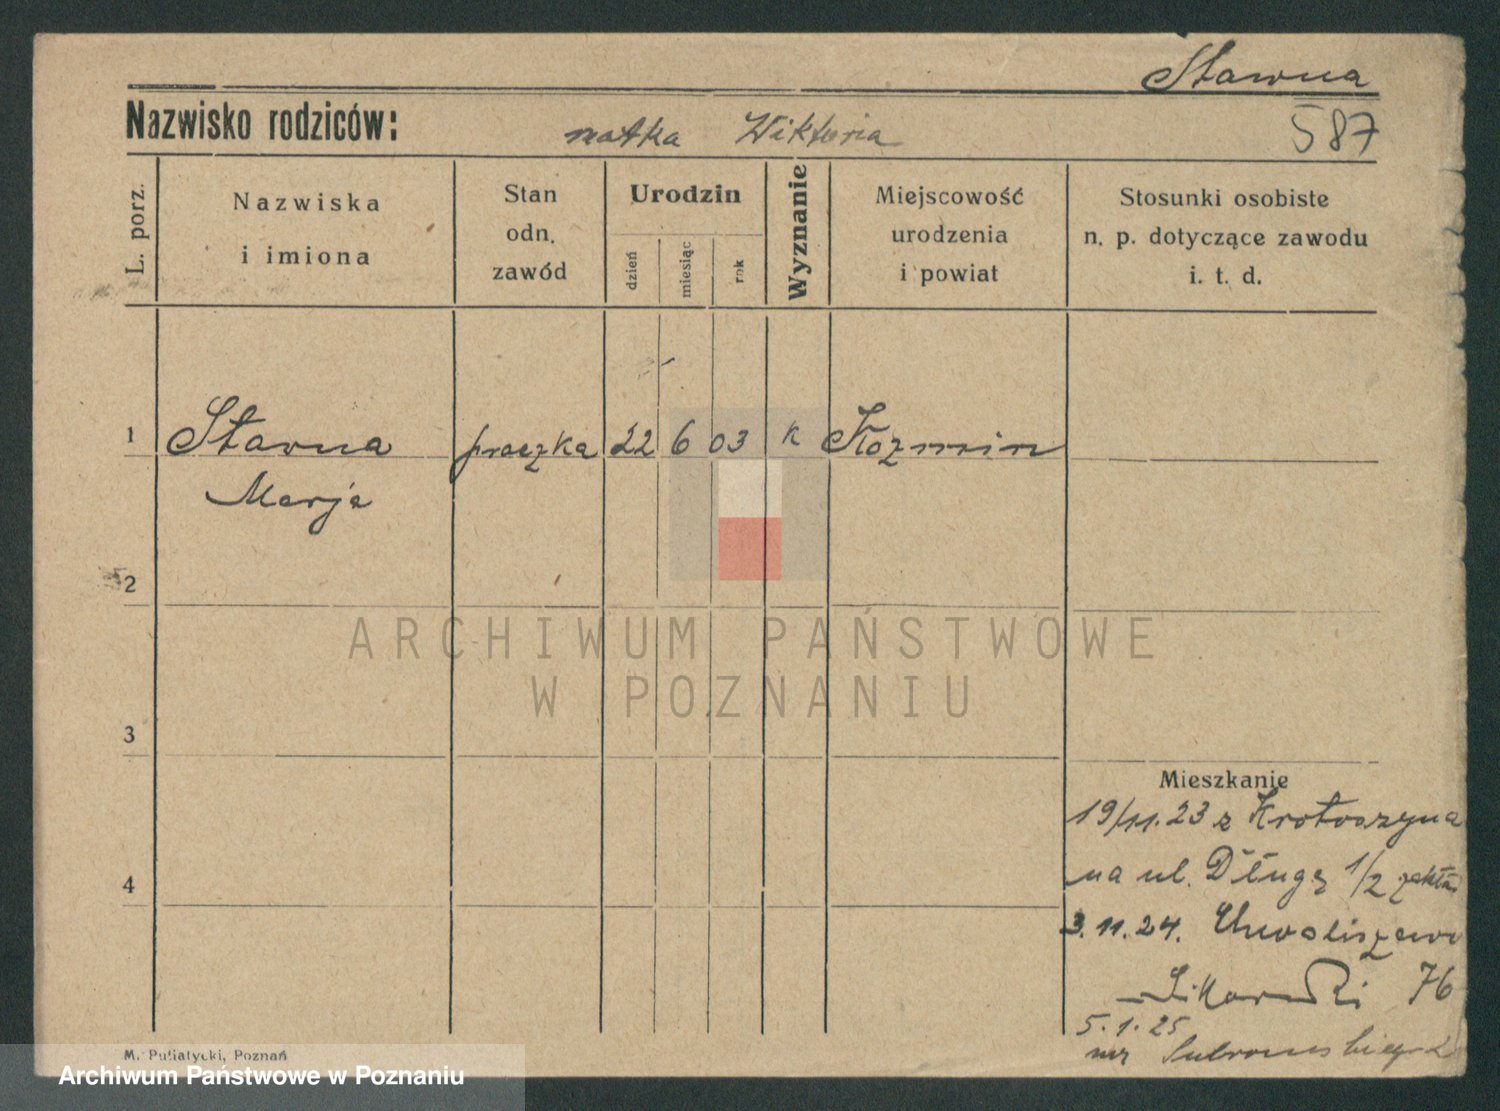 Stawna
Nazwisko rodziców: matka Wiktoria 587
L. porz.
Nazwiska
i imiona
Stan
odn.
zawód
Urodzin
dzień
miesiąc
rok
Wyznanie
Miejscowość
urodzenia
i powiat
Stosunki osobiste
n. p. dotyczące zawodu
i. t. d.
1 Stawna praczka 22 6 03 k Kozmin
Marja
2
ARCHIWUM PAŃSTWOWE
W POZNANIU
3
Mieszkanie
19/11.23 z Krotoszyna
4 na ul. Długą 1/2 zakład
3.11.24. Chwaliszewo
76
5.1.25
M. Putiatycki, Poznań
Archiwum Państwowe w Poznaniu